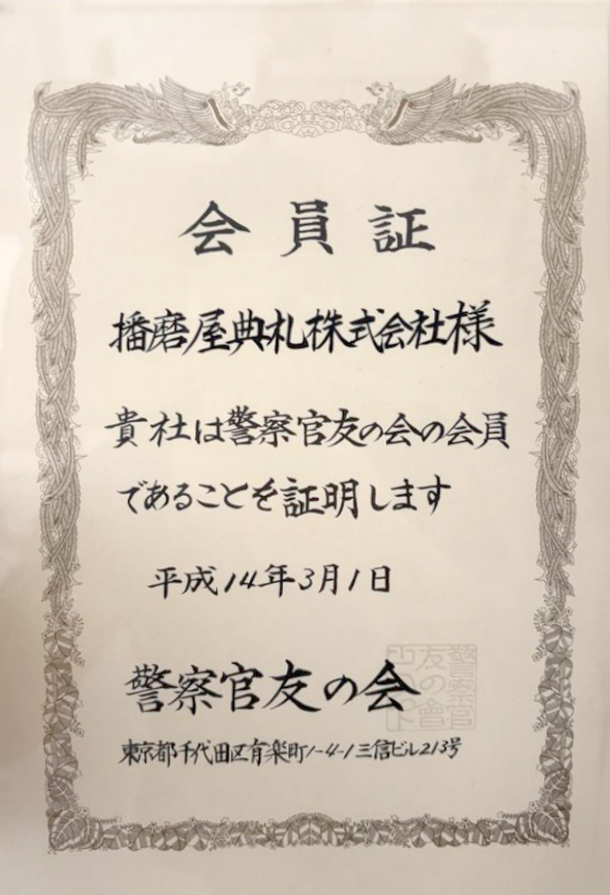 会員証
播磨屋典礼株式会社様
貴社は警察官友の会の会員
であることを証明します
平成14年3月1日
警察官友の会
東京都千代田区有楽町1-4-1三信ビル213号